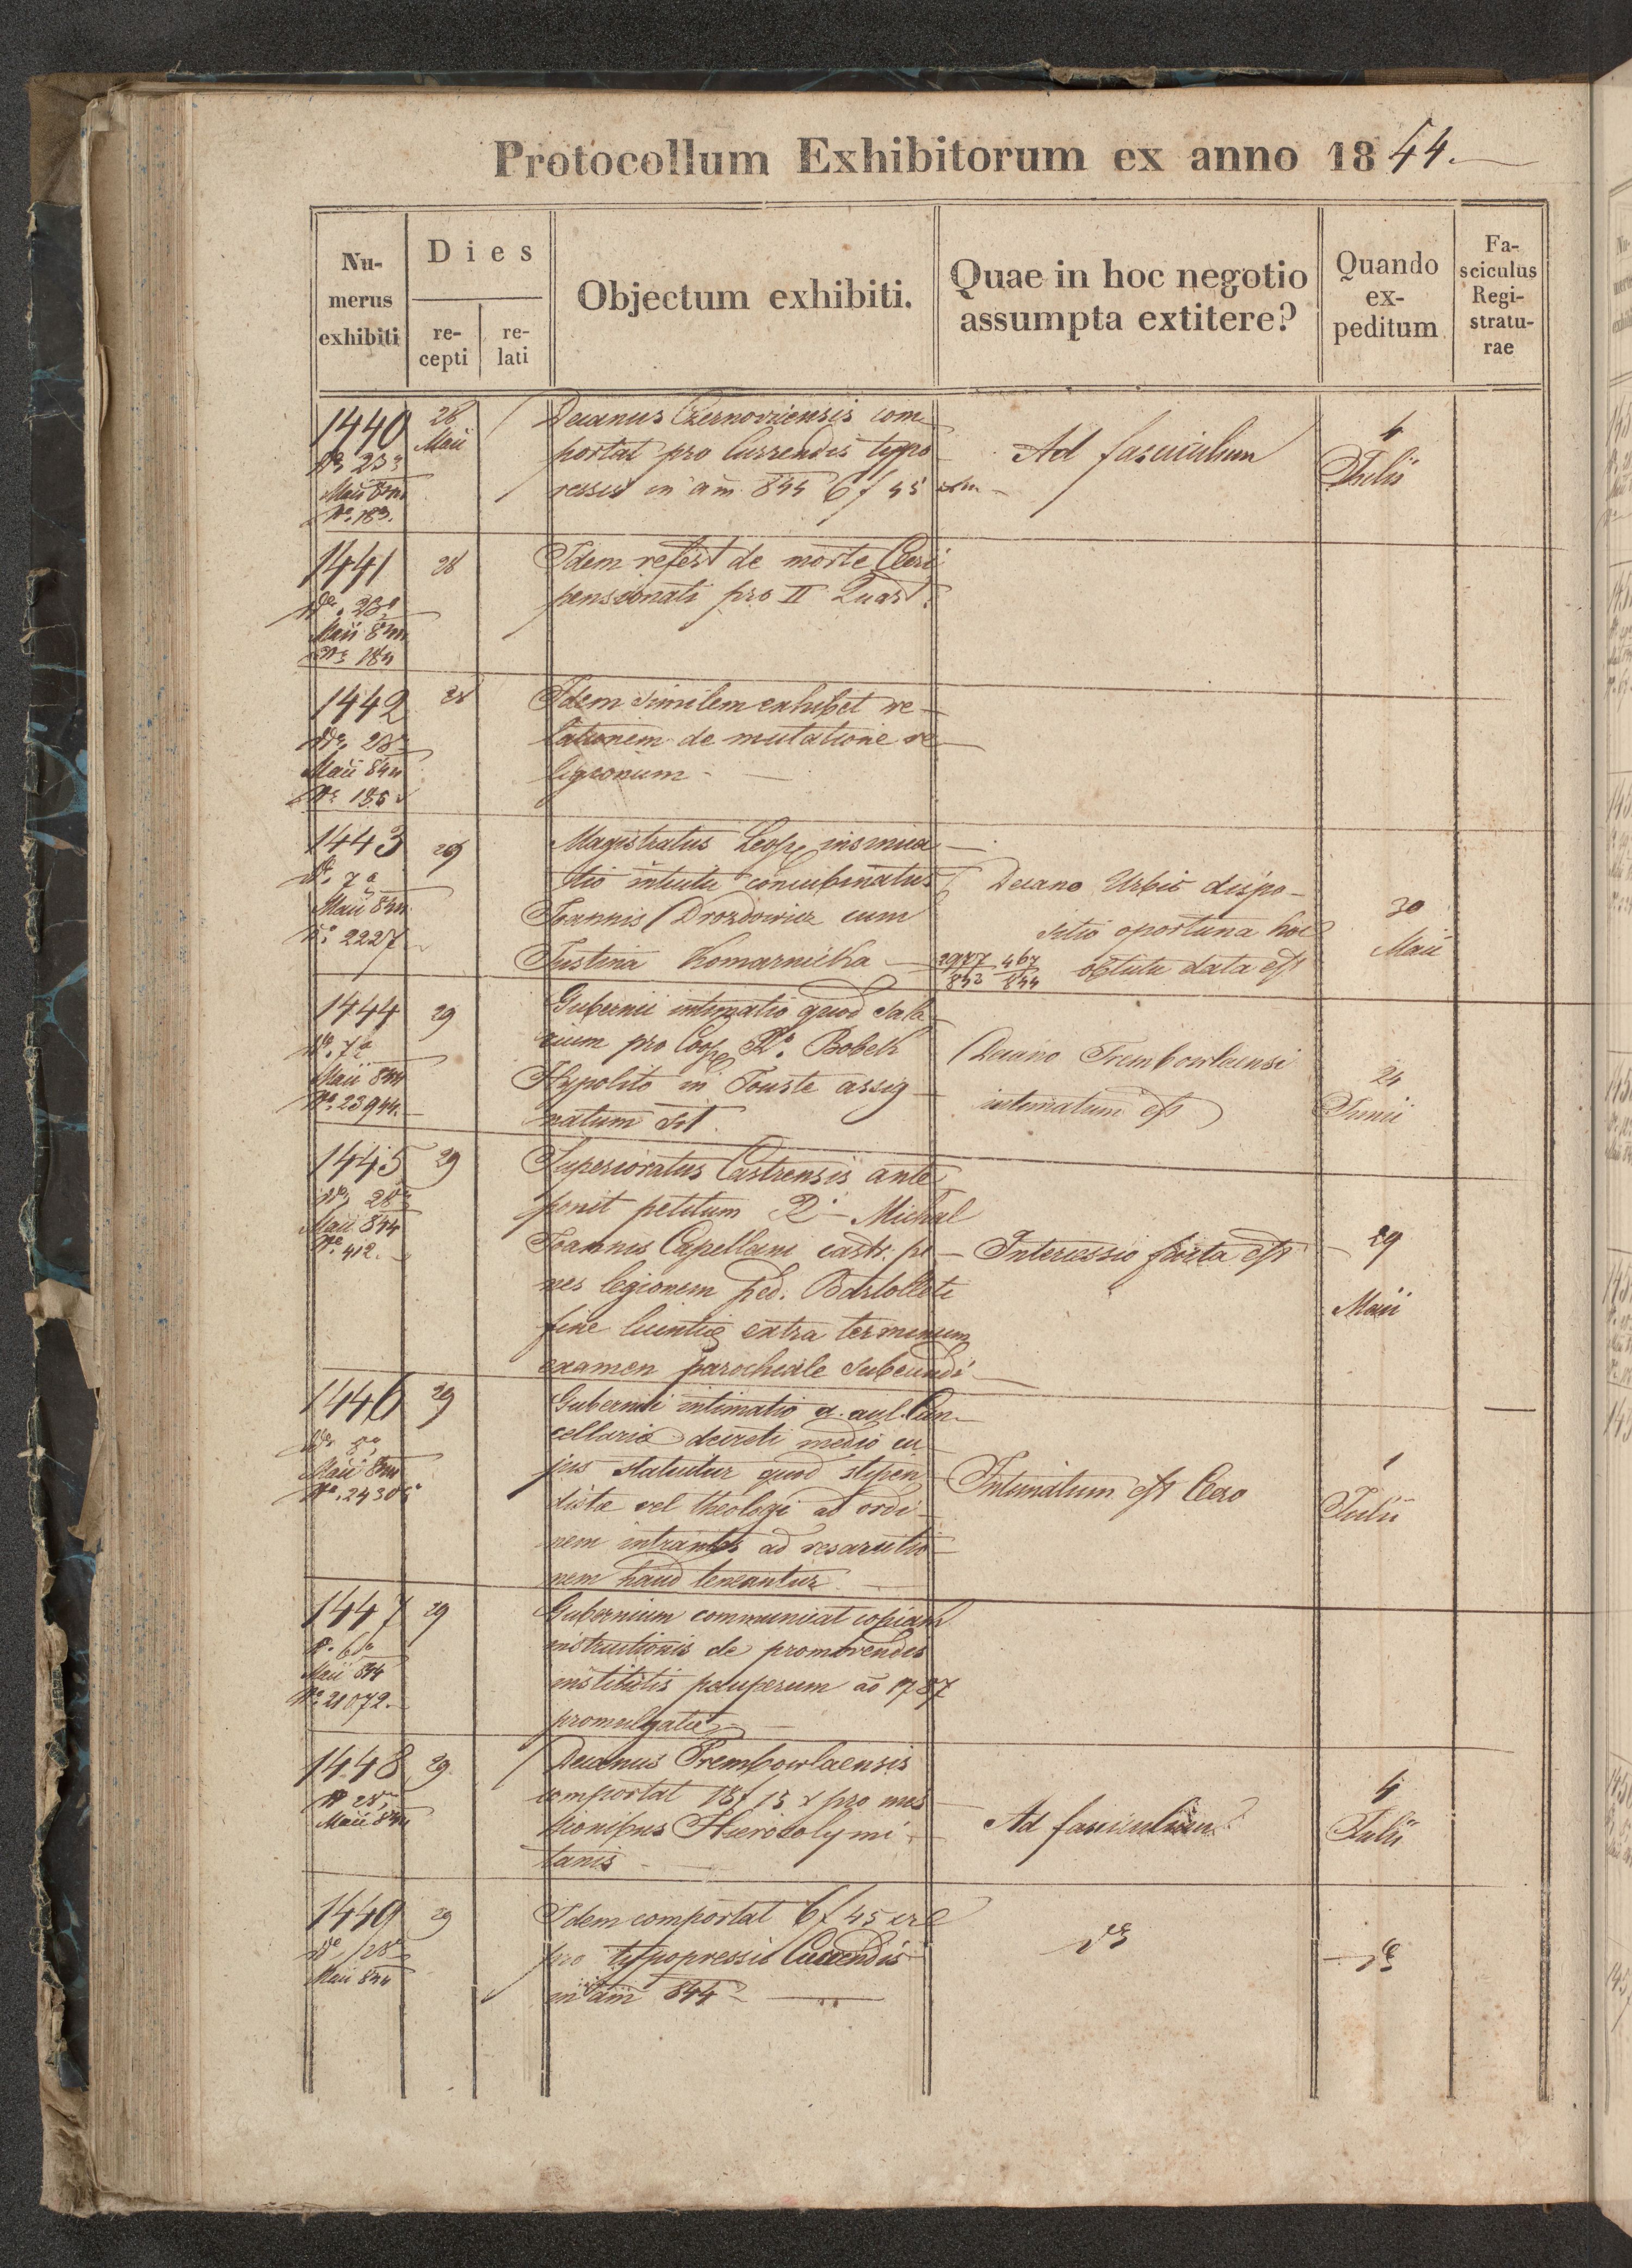 Protocollum Exhibitorum ex anno 1844.
Nu-
merus
exhibiti
Dies
re-
cepti
re-
lati
Objectum exhibiti.
Quae in hoc negotio
assumpta extitere?
Quando
ex-
peditum
Fa-
sciculus
Regi-
stratu-
rae
1440
28
Maii
Maii 844
No. 183.
Decanus Czernoviciensis com-
portat pro Currendis typo
pressis in am 844 6 f 45 xr
Ad fasciculum
4
Julii
1441
28
Maii 844
No 184
Idem refert de morte Cleri
pensionati pro II Quart.
1442
28
Maii 844
No 185
Idem similem exhibet re-
lationem de mutatione re-
ligionum -
1443
29
Maii 844
No 2227
Magistratus Leop. insinua-
tio intuitu concubinatus
Joannis Drozdowicz cum
Justina Komarnicka
Decano Urbis dispo-
sitio oportuna hoc
2977 467
843 844
obtutu data est
30
Maii
1444
29
Maii 844
No. 23944.
Gubernii intimatio quod sala-
rium pro Coop. Ro. Bobek
Hypolito in Touste assig-
natum sit.
Decano Trembowlaensi
intimatum est
24
Junii
1445
29
Maii 844
No 412.
Superioratus Castrensis ante-
ponit petitum R. Michal
Joannis Capellani castr. pe-
nes legionem ped. Bartolleti
fine licentiae extra terminum
examen parochiale subeundi
Intercessio facta est
29
Maii
1446
29
Maii 844
No. 24306
Gubernii intimatio a. aul. Can-
cellariae decreti medio cu-
jus statuitur quod stipen-
distae vel theologi ad ordi-
nem intrantes ad resarcitio-
nem haud teneantur
Intimatum est Clero
1
Julii
1447
29
Maii 844
No 21072.
Gubernium communicat copiam
instructionis de promovendis
institutis pauperum ao 1787
promulgatae
1448
29
Maii 844
Decanus Trembowlaensis
comportat 18 f 15 x pro mis-
sionibus Hierosolymi-
tanis
Ad fasciculum
4
Julii
1449
29
Maii 844
Idem comportat 6 f 45 xr
pro typopressis Currendis
in am 844